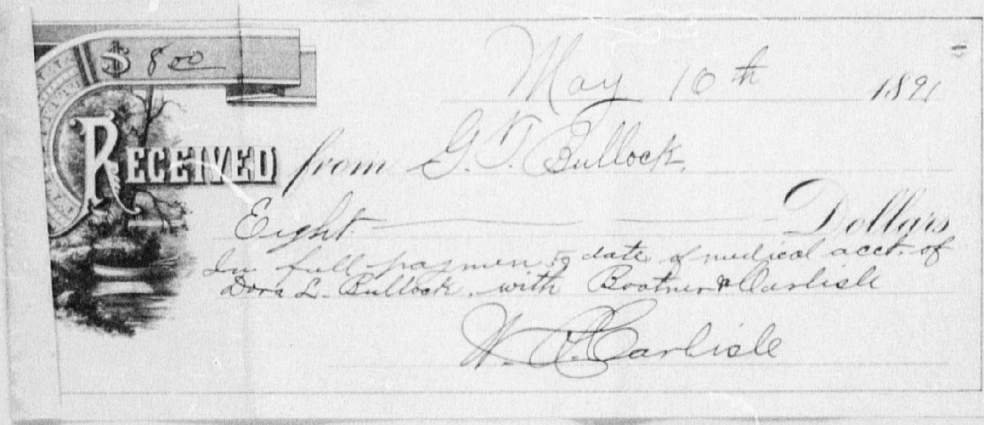 $ 8 00
May 10th 1891
Received from G. T. Bullock.
Eight Dollars
In full paymen to date of medical acct. of
Dora L. Bullock. with Boatner & Carlisle
W. A. Carlisle